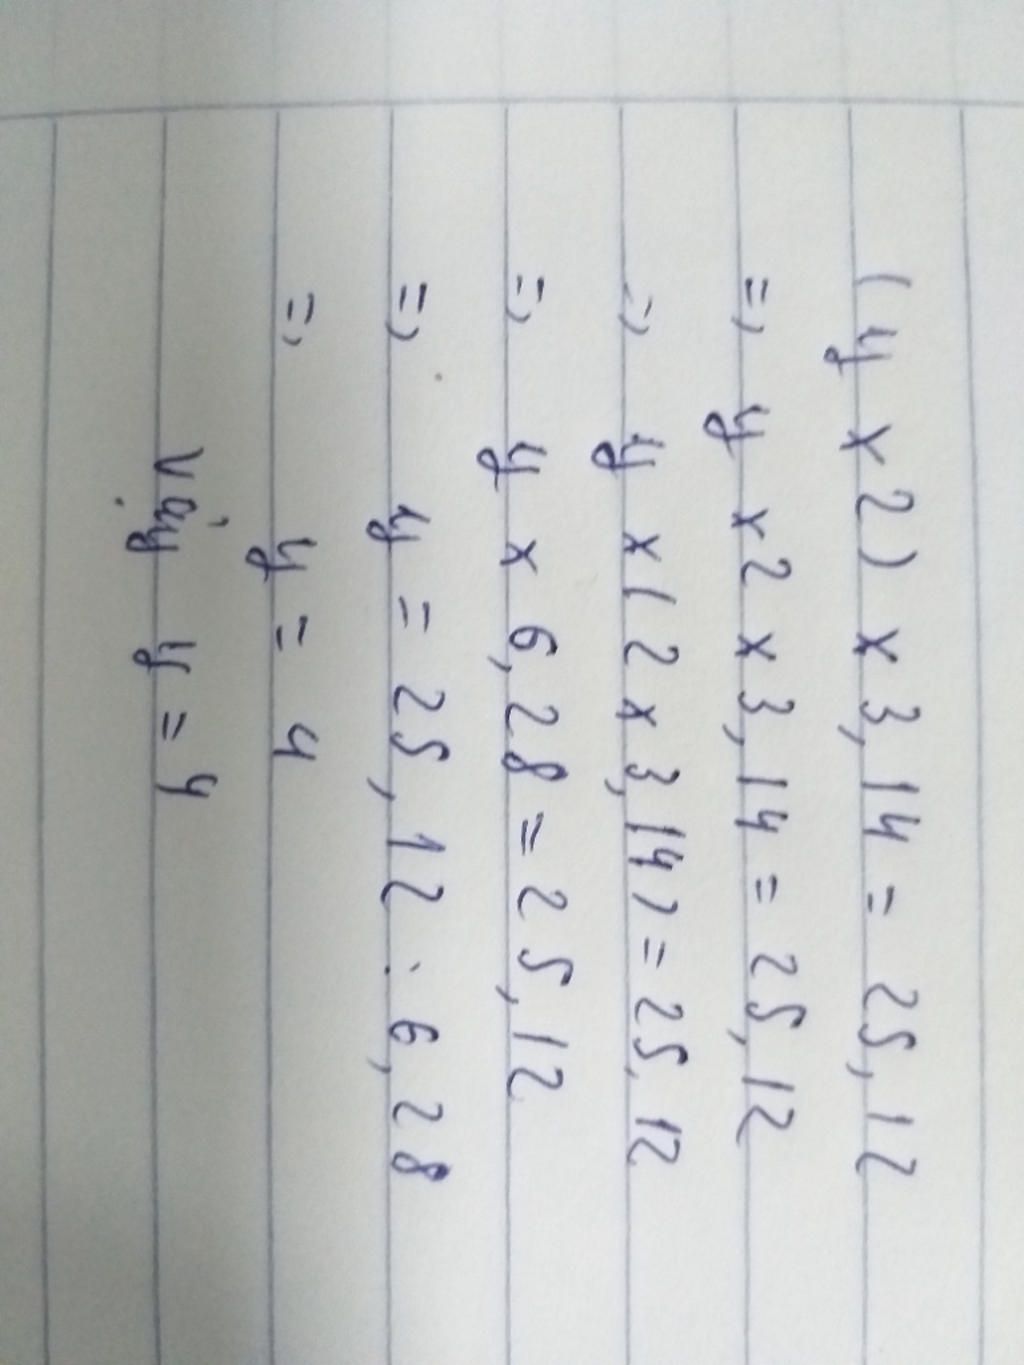 (y x 2) x 3,14 = 25,12
=> y x 2 x 3,14 = 25,12
=> y x (2 x 3,14) = 25,12
=> y x 6,28 = 25,12
=> y = 25,12 : 6,28
=> y = 4
Vậy y = 4